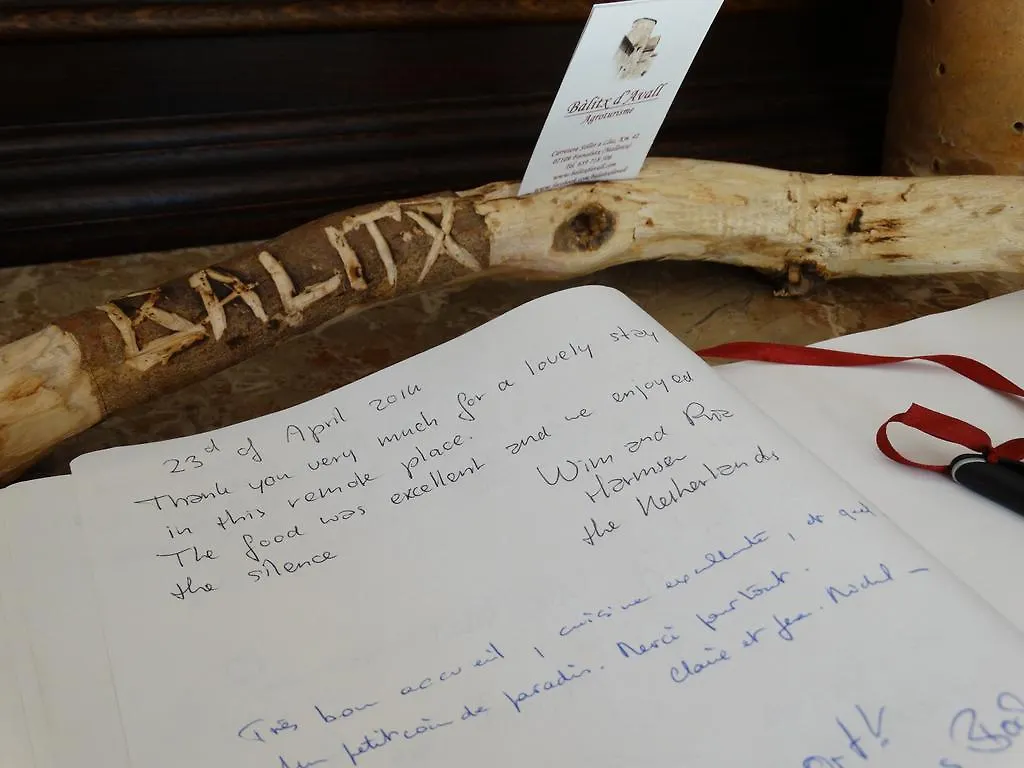 Bàlitx d'Avall
Agroturisme
Carretera Sóller a Lluc, Km.
(Mallorca)
BALITX
23d of April 2014
Thank you very much for a lovely stay
in this remote place.
The food was excellent and we enjoyed
the silence
Wim and
Harmsen
the Netherlands
Très bon accueil, cuisine excellente, et quel
petit coin de paradis. Merci pour tout.
Claire et